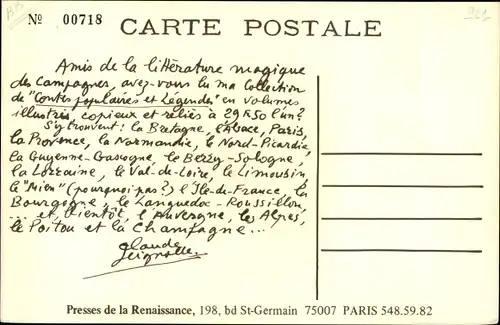 Nº 00718
CARTE POSTALE
Amis de la littérature magique
des campagnes, avez-vous lu ma collection
de "Contes populaires et Légendes" en volumes
illustrés, copieux et reliés à 29F50 l'un?
S'y trouvent: la Bretagne, l'Alsace, Paris,
la Provence, la Normandie, le Nord-Picardie,
la Guyenne-Gascogne, le Berry-Sologne,
la Lorraine, le Val-de-Loire, le Limousin,
le "Mien" (pourquoi pas?) l'Ile-de-France, la
Bourgogne, le Languedoc-Roussillon,
... et bientôt, l'Auvergne, les Alpes,
le Poitou et la Champagne...
Claude
Seignolle
Presses de la Renaissance, 198, bd St-Germain 75007 PARIS 548.59.82